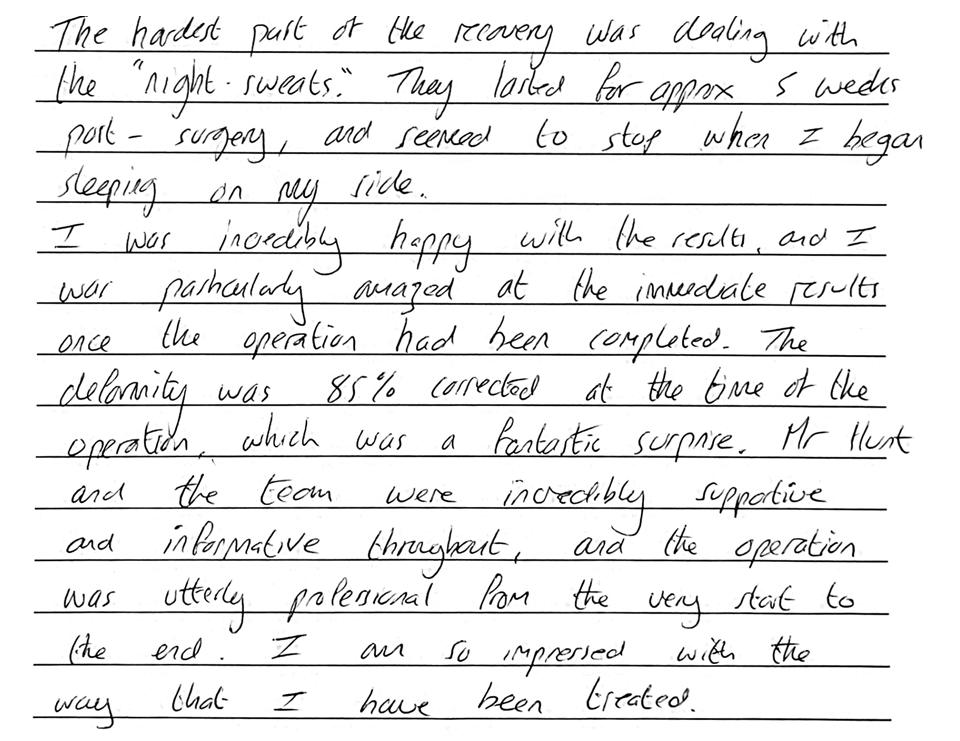 The hardest part of the recovery was dealing with
the "night-sweats". They lasted for approx 5 weeks
post-surgery, and seemed to stop when I began
sleeping on my side.
I was incredibly happy with the results, and I
was particularly amazed at the immediate results
once the operation had been completed. The
deformity was 85% corrected at the time of the
operation, which was a fantastic surprise. Mr Hunt
and the team were incredibly supportive
and informative throughout, and the operation
was utterly professional from the very start to
the end. I am so impressed with the
way that I have been treated.